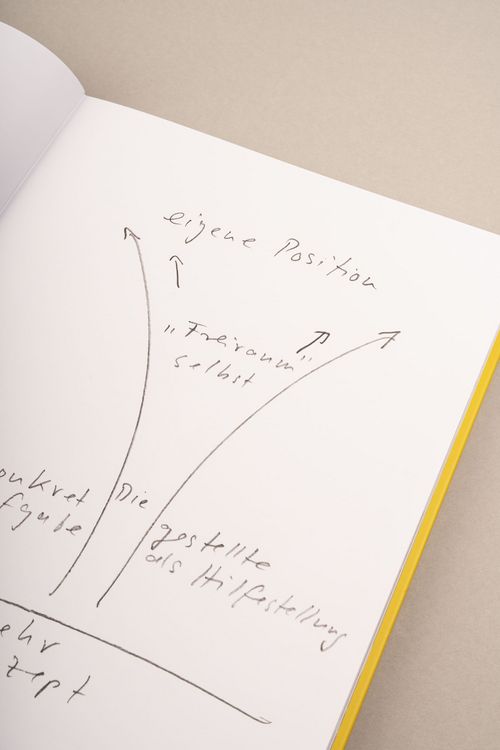 eigene Position
„Freiraum"
selbst
onkret Die gestellte
fgabe als Hilfestellung
ehr
zept